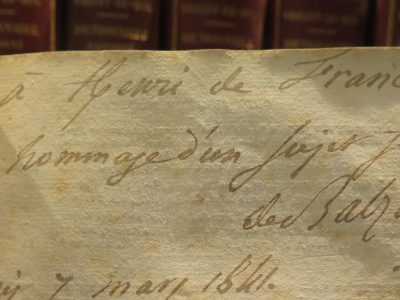 à Henri de Franc
hommage d'un sujet f
de Balz
7 mars 1841.